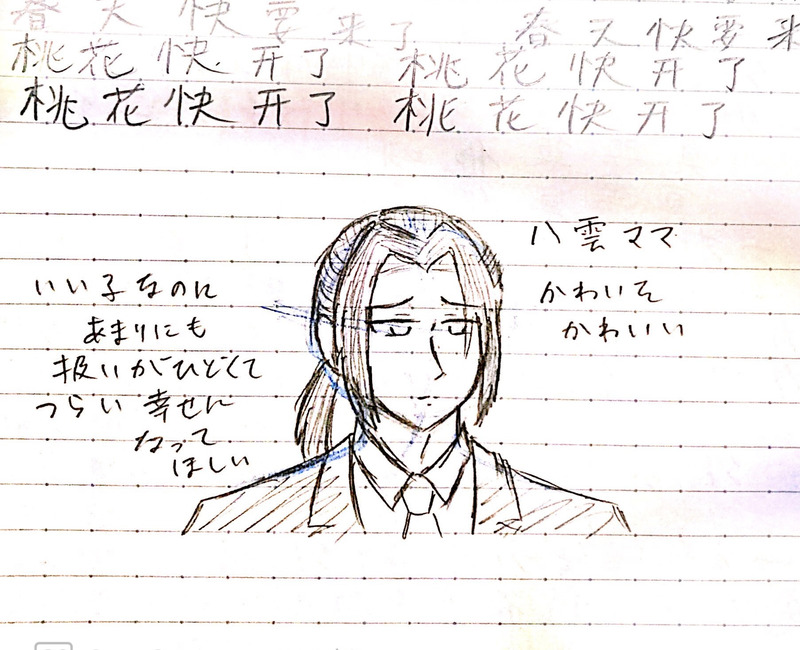 春天快要来了 春天快要来
桃花快开了 桃花快开了
桃花快开了 桃花快开了
いい子なのに
あまりにも
扱いがひどくて
つらい 幸せに
なって
ほしい
八雲ママ
かわいそ
かわいい